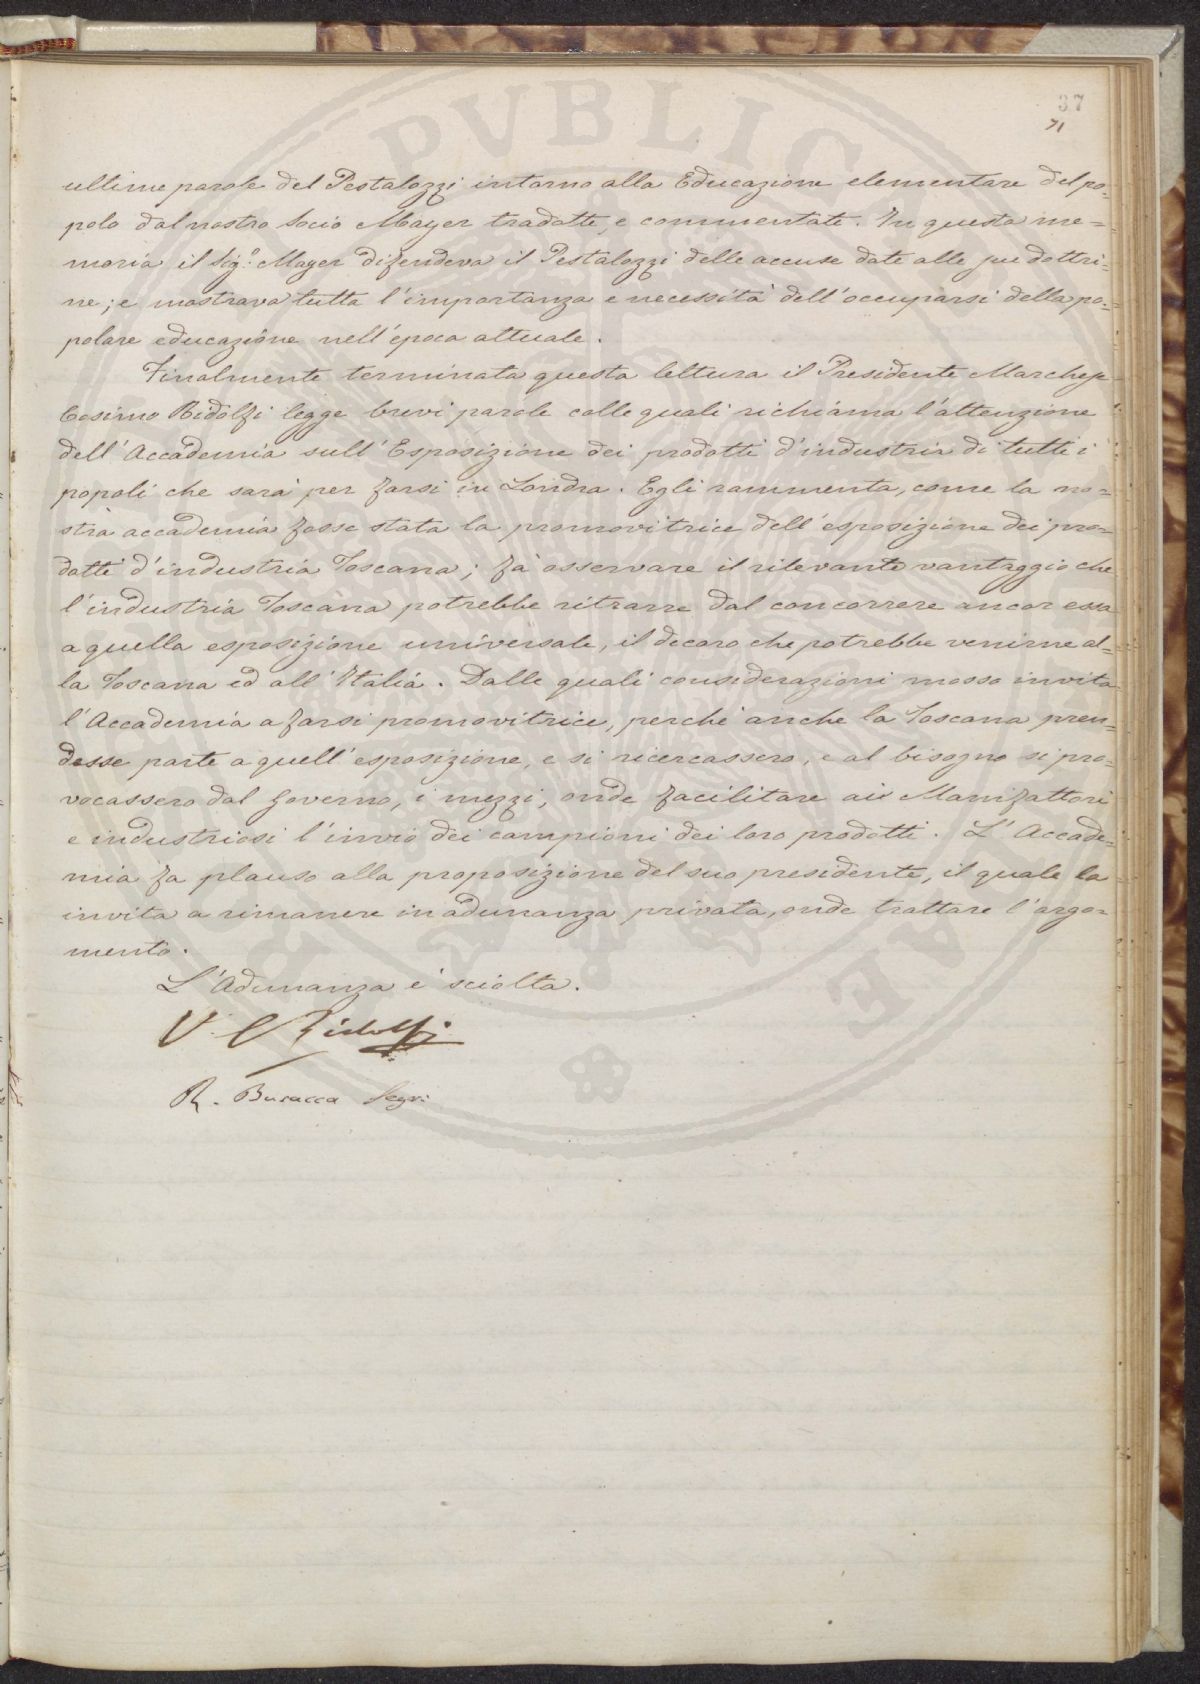 37
71
ultime parole del Pestalozzi intorno alla Educazione elementare del po-
polo dal nostro Socio Mayer tradotte, e commentate. In questa me-
moria il Sigr. Mayer difendeva il Pestalozzi delle accuse date alle sue dottri-
ne; e mostrava tutta l'importanza e necessità dell'occuparsi della po-
polare educazione nell'epoca attuale.
Finalmente terminata questa lettura il Presidente Marchese
Cosimo Ridolfi legge brevi parole colle quali richiama l'attenzione
dell'Accademia sull'Esposizione dei prodotti d'industria di tutti i
popoli che sarà per farsi in Londra. Egli rammenta, come la no-
stra accademia fosse stata la promovitrice dell'esposizione dei pro-
dotti d'industria Toscana; fà osservare il rilevante vantaggio che
l'industria Toscana potrebbe ritrarre dal concorrere ancor essa
a quella esposizione universale, il decoro che potrebbe venirne al-
la Toscana ed all'Italia. Dalle quali considerazioni mosso invita
l'Accademia a farsi promovitrice, perchè anche la Toscana pren-
desse parte a quell'esposizione, e si ricercassero, e al bisogno si pro-
vocassero dal Governo, i mezzi, onde facilitare ai Manifattori
e industriosi l'invio dei campioni dei loro prodotti. L'Accade-
mia fa plauso alla proposizione del suo presidente, il quale la
invita a rimanere in adunanza privata, onde trattare l'argo-
mento.
L'Adunanza è sciolta.
V. C Ridolfi
R. Busacca Segr:
PVBLICA